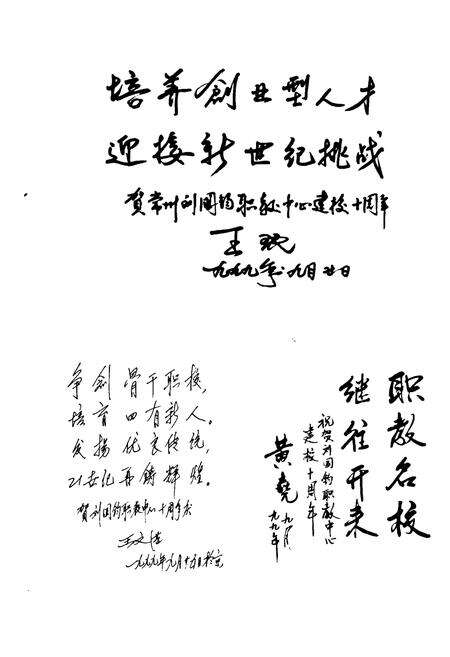 培养創业型人才
迎接新世纪挑战
贺常州刘国钧职教中心建校十周年
王珉
九九年九月廿日
争创骨干职校，
培育四有新人。
发扬优良传统，
21世纪再铸辉煌。
贺刘国钧职教中心十周年
王文
一九九九年九月十五日於京
职教名校
继往开来
祝贺刘国钧职教中心
建校十周年
黄堯
九九年九月